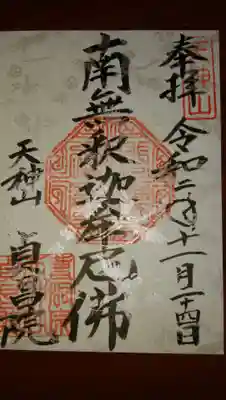 奉拝
令和二年十一月二十四日
南無釈迦牟尼佛
天神山
貞昌院